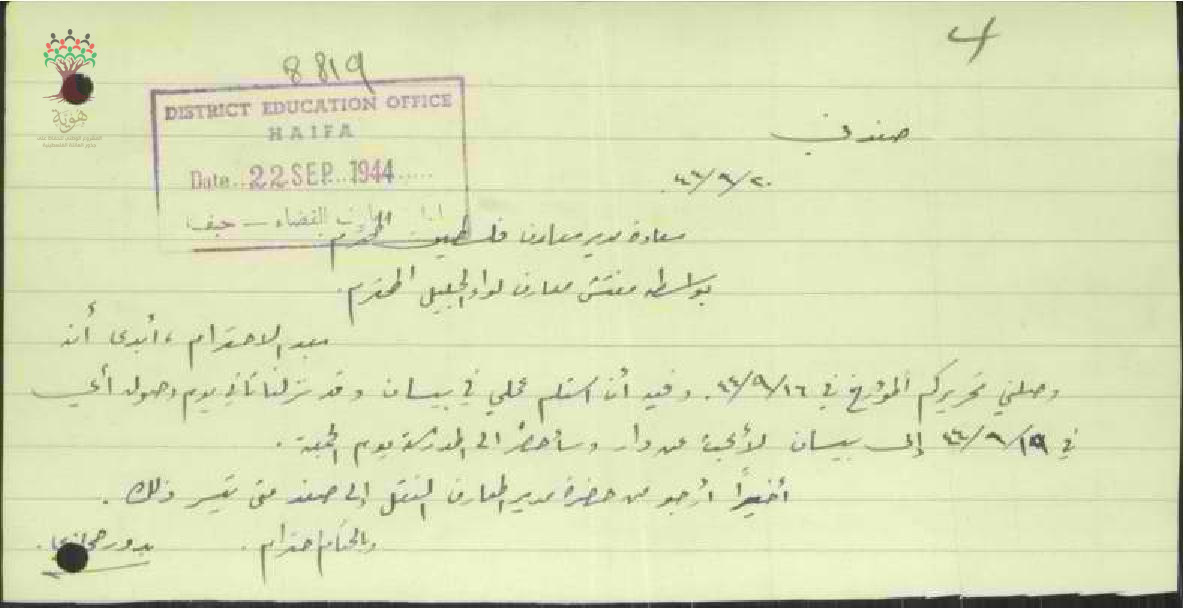 4
8819
DISTRICT EDUCATION OFFICE
HAIFA
Date...22 SEP. 1944......
معارف القضاء - حيفا
هوية
صفد في
٤٤/٩/٢٠
سعادة مدير معارف فلسطين المحترم
بواسطة مفتش معارف لواء الجليل المحترم.
بعد الاحترام، أبدى أنه
وصلني تحريركم المؤرخ في ٤٤/٩/١٦. وفيه أن استلم عملي في بيسان وقد نزلنا ثاني يوم وصوله أي
في ٤٤/٩/١٩ إلى بيسان لأبحث عن دار وسأحضر الى المدرسة يوم الجمعة.
أخيراً أرجو من حضرة مدير المعارف النقل إلى صفد متى تيسر ذلك.
وبالختام احترام.
بدور حجازي.